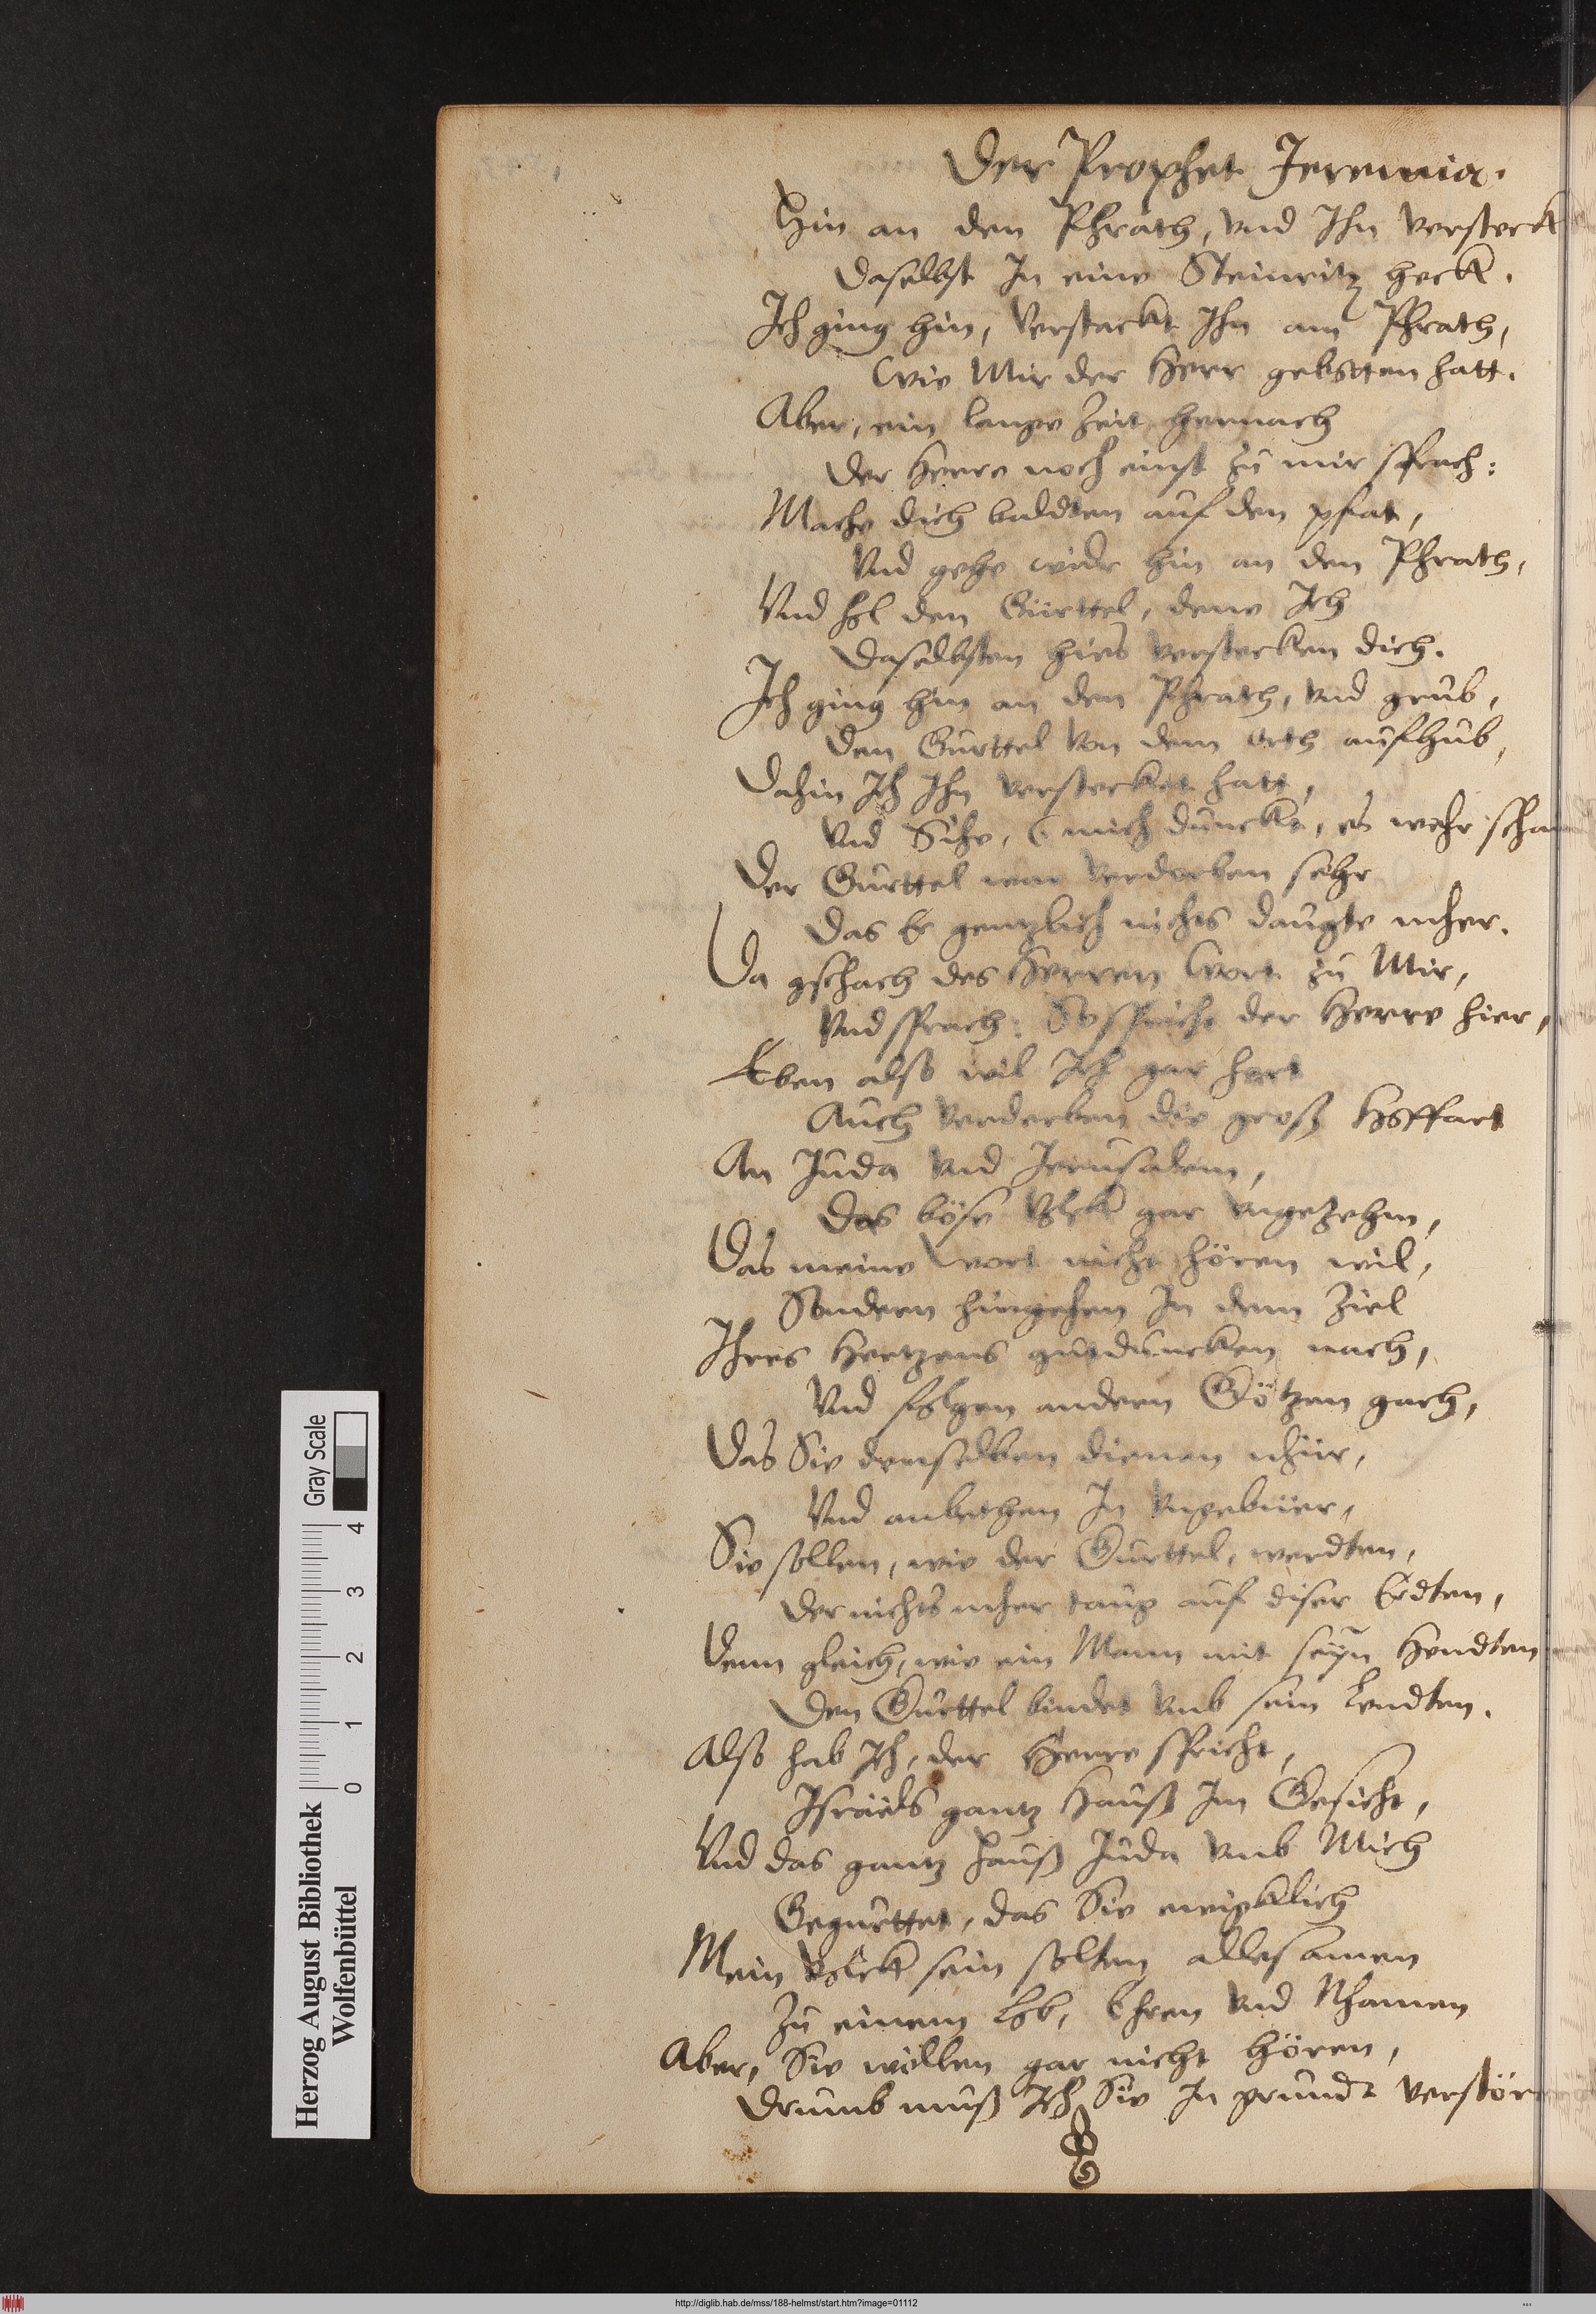 Der Prophet Jeremia.
Hin an den Phrath, vnd Ihn versteck
Daselbst In eine Steinritz heck.
Ich ging hin, Verstackt Ihn am Phrath,
Wie Mir der Herr gebotten hatt.
Aber, ein lange Zeit hernach
Der Herre noch einst zu mir sprach:
Mache dich baldten auf den pfat,
Vnd gehe widr hin an den Phrath,
Vnd hol den Gürttel, denn Ich
Daselbsten hies verstecken dich.
Ich ging hin an den Phrath, vnd grub,
Den Gurttel von dem Orth aufhub,
Dahin Ich Ihn verstecket hatt,
Vnd Sihe, (mich dunckt, es wehr scha
Der Gurttel war verdorben sehr
Das Er gentzlich nichts daugte mher.
Da gschach des Herren Wort zu Mir,
Vnd sprach: So spricht der Herre hier,
Eben also wil Ich gar hart
Auch verderben die groß Hoffart
An Juda vnd Jerusalem,
Das böse Volck gar vngezehm,
Das meine Wort nicht hören wil,
Sondern hingehen In dem Ziel
Ihres Hertzens gutduncken nach,
Vnd folgen andern Götzen gach,
Das Sie denselben dienen nhür,
Vnd anbethen In vngebüer,
Sie sollen, wie der Gurttel, werdten,
Der nichts mher taug auf diser Erdten,
Denn gleich, wie ein Mann mit seyn Hendten
Den Gurttel bindet vmb sein Lendten.
Also hab Ich, der Herre spricht,
Israels gantz Hauß Im Gesicht,
Vnd das gantz Hauß Juda vmb Mich
Gegurttet, das Sie ewigklich
Mein Volck sein solten allesamen
Zu einem Lob, Ehren vnd Nhamen
Aber, Sie wöllen gar nicht hören,
Drumb muß Ich Sie In grundt verstör
Herzog August Bibliothek
Wolfenbüttel
0 1 2 3 4
Gray Scale
http://diglib.hab.de/mss/188-helmst/start.htm?image=01112